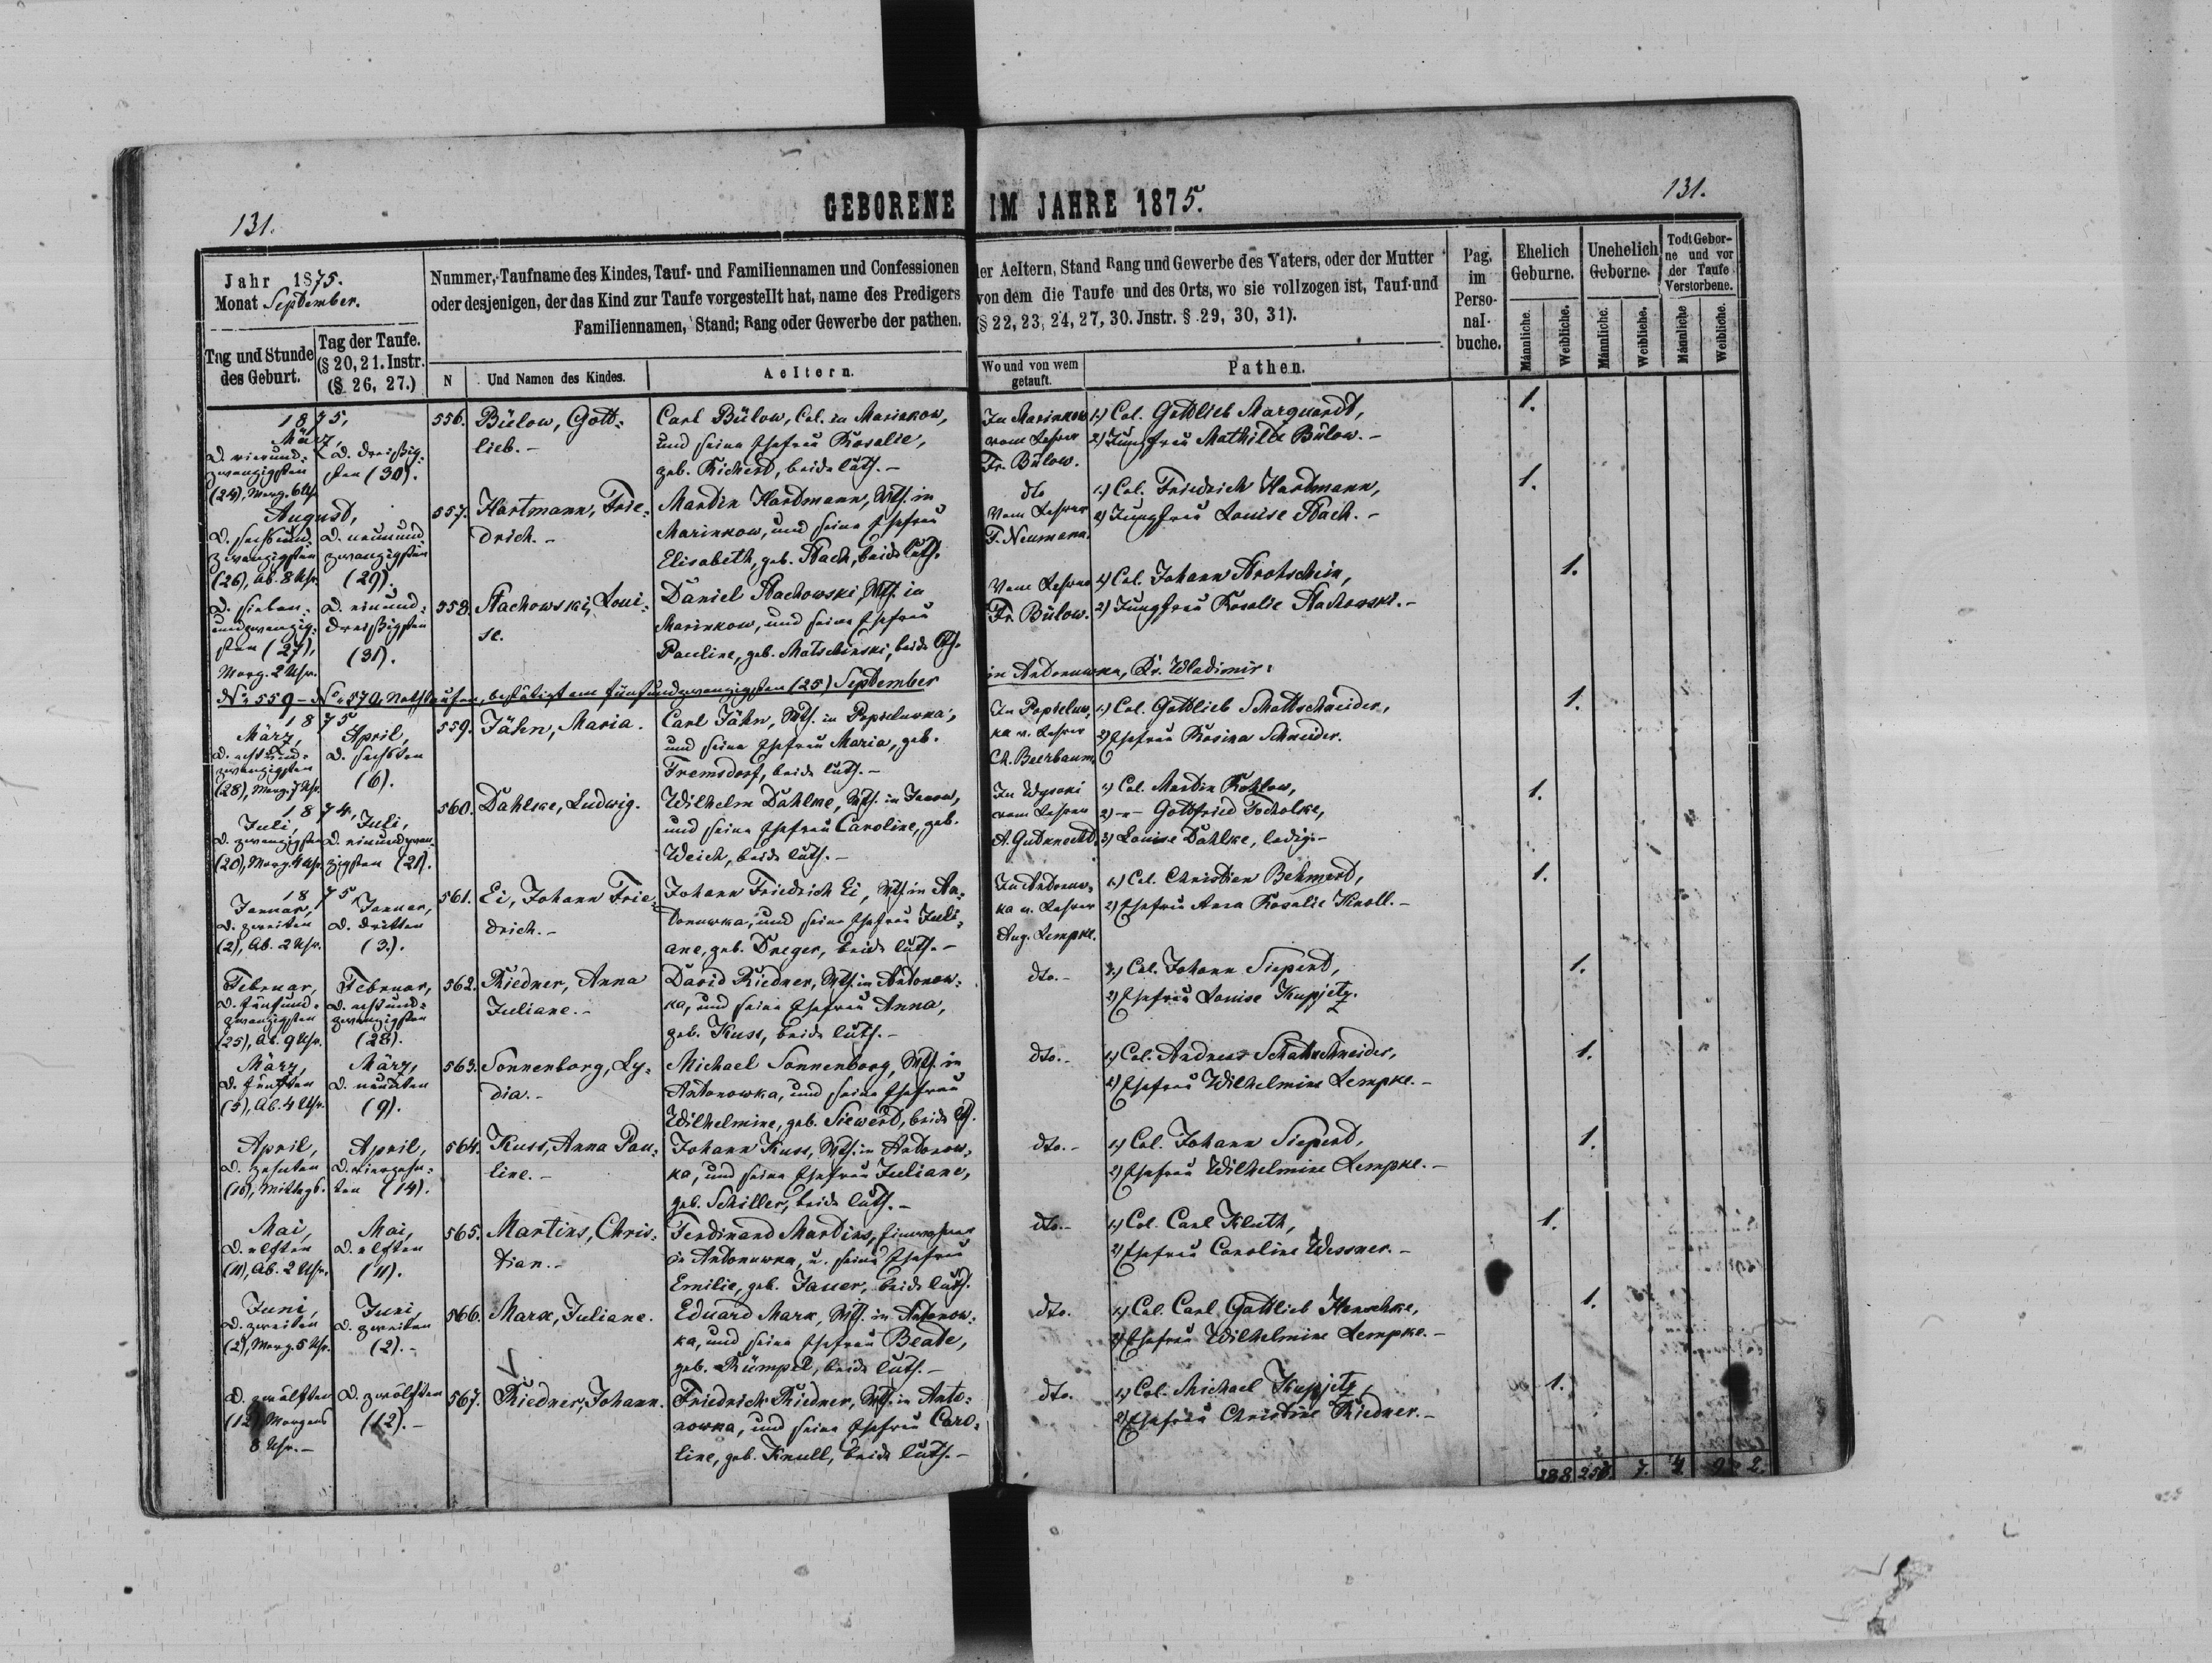 GEBORENE IM JAHRE 1875.
131.
131.
Jahr 1875.
Monat September.
Tag und Stunde des Geburt.
Tag der Taufe. (§ 20, 21. Instr. (§ 26, 27.)
Nummer, Taufname des Kindes, Tauf- und Familiennamen und Confessionen der Aeltern, Stand Rang und Gewerbe des Vaters, oder der Mutter
oder desjenigen, der das Kind zur Taufe vorgestellt hat, name des Predigers von dem die Taufe und des Orts, wo sie vollzogen ist, Tauf-und
Familiennamen, Stand; Rang oder Gewerbe der pathen. (§ 22, 23, 24, 27, 30. Jnstr. § 29, 30, 31).
N
Und Namen des Kindes.
Aeltern.
Wo und von wem getauft.
Pathen.
Pag. im Perso-nal-buche.
Ehelich Geburne.
Unehelich Geborne.
Todt Gebor-ne und vor der Taufe Verstorbene.
Männliche.
Weibliche.
Männliche.
Weibliche.
Männliche
Weibliche.
1875,
März,
d. vierund-
zwanzigsten
(24), Morg. 6 Uhr
d. dreißig-
sten (30).
556. Bülow, Gott-
lieb.-
Carl Bülow, Col. in Marinkow,
und seine Ehefrau Rosalie,
geb. Richert, beide luth.-
In Marinkow
vom Lehrer
Fr. Bülow.
1.) Col. Gottlieb Marquardt,
2) Jungfrau Mathilde Bülow.-
1.
August,
d. sechsund-
zwanzigsten
(26), Ab. 8 Uhr
d. neunund-
zwanzigsten
(29).
557. Hartmann, Frie-
drich.-
Martin Hartmann, in
Marinkow, und seine Ehefrau
Elisabeth, geb. Stach, beide luth.
dto
Vom Lehrer
F. Neumann.
1.) Col. Friedrich Hartmann,
2) Jungfrau Louise Stach.-
1.
d. sieben-
undzwanzig-
sten (27),
Morg. 2 Uhr.
d. einund-
dreißigsten
(31).
558. Stachowski, Loui-
se.
Daniel Stachowski, in
Marinkow, und seine Ehefrau
Pauline, geb. Matschinski, beide
Vom Lehrer
Fr. Bülow.
1) Col. Johann
2) Jungfrau Rosalie Stachowski.-
1.
No 559 - No 570, bestätigt am fünfundzwanzigsten (25) September in Antonuwka, Kr. Wladimir:
1875
März,
d. achtund-
zwanzigsten
(28), Morg. 7 Uhr.
April,
d. sechsten
(6).
559. Jähn, Maria.
Carl Jähn, in Popieluwka,
und seine Ehefrau Maria, geb.
Fremsdorf, beide luth.-
In Popieluw-
ka v. Lehrer
Ch. Beerbaum,
1.) Col. Gottlieb Schattschneider,
2) Ehefrau Rosina Schneider.
1.
1874,
Juli,
d. zwanzigsten
(20), Morg. 4 Uhr
Juli,
d. einundzwan-
zigsten (21).
560. Dahlke, Ludwig.
Wilhelm Dahlke, in
und seine Ehefrau Caroline, geb.
Weich, beide luth.-
In Wysoki
vom Lehrer
A. Gutknecht.
1) Col. Martin
2) -"- Gottfried
3) Louise Dahlke, ledig.-
1.
1875,
Januar,
d. zweiten
(2), Ab. 2 Uhr.
Januar,
d. dritten
(3.).
561. Ei, Johann Frie-
drich.-
Johann Friedrich Ei, in An-
tonuwka, und seine Ehefrau Juli-
ane, geb. Dreger, beide luth.-
In Antonuw-
ka v. Lehrer
Aug. Lempke.
1.) Col. Christian
2) Ehefrau Anna Rosalie Knoll.-
1.
Februar,
d. fünfund-
zwanzigsten
(25), Ab. 9 Uhr.
Februar,
d. achtund-
zwanzigsten
(28).
562. Riedner, Anna
Juliane.-
David Riedner, in Antonow-
ka, und seine Ehefrau Anna,
geb. Kuss, beide luth.-
dto.-
1.) Col. Johann
2) Ehefrau Louise Kupjetz.
1.
März,
d. fünften
(5), Ab. 4 Uhr.
März,
d. neunten
(9).
563. Sonnenborg, Ly-
dia.-
Michael Sonnenborg, in
Antonowka, und seine Ehefrau
Wilhelmine, geb. Siewert, beide
dto.-
1.) Col. Andreas Schattschneider,
2) Ehefrau Wilhelmine Lempke.-
1.
April,
d. zehnten
(10), Mittags.
April,
d. vierzehn-
ten (14).
564. Kuss, Anna Pau-
line.-
Johann Kuss, in Antonow-
ka, und seine Ehefrau Juliane,
geb. Schiller, beide luth.-
dto.-
1.) Col. Johann
2) Ehefrau Wilhelmine Lempke.-
1.
Mai,
d. elften
(11), Ab. 2 Uhr.
Mai,
d. elften
(11).
565. Martins, Chris-
tian.-
Ferdinand Martins, Einwohner
in Antonuwka, u. seine Ehefrau
Emilie, geb. Jauer, beide luth.
dto.-
1.) Col. Carl Kluth,
2) Ehefrau Caroline Wessner.-
1.
Juni,
d. zweiten
(2), Morg. 5 Uhr.
Juni,
d. zweiten
(2).-
566. Marx, Juliane.
Eduard Marx, in Antonow-
ka, und seine Ehefrau Beate,
geb. Rümpel, beide luth.-
dto.
1.) Col. Carl Gottlieb Henschke,
2) Ehefrau Wilhelmine Lempke.-
1.
d. zwölften
(12) Morgens
8 Uhr.-
d. zwölften
(12).-
567. Riedner, Johann.
Friedrich Riedner, in Anto-
nowka, und seine Ehefrau Caro-
line, geb. Knull, beide luth.-
dto.
1.) Col. Michael Kupjetz,
2) Ehefrau Christine Riedner.-
1.
288. 7. 2.